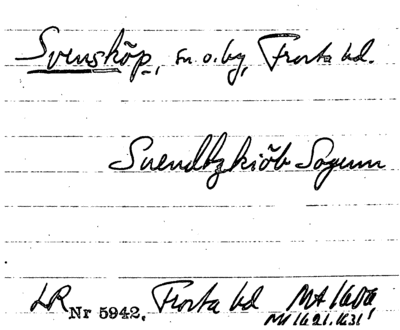 Svensköp, sn o. by, Frosta hd.
Suendtzkiöb Sogenn
LR Nr 5942. Frosta hd MA 1606
MA 1621, 1631